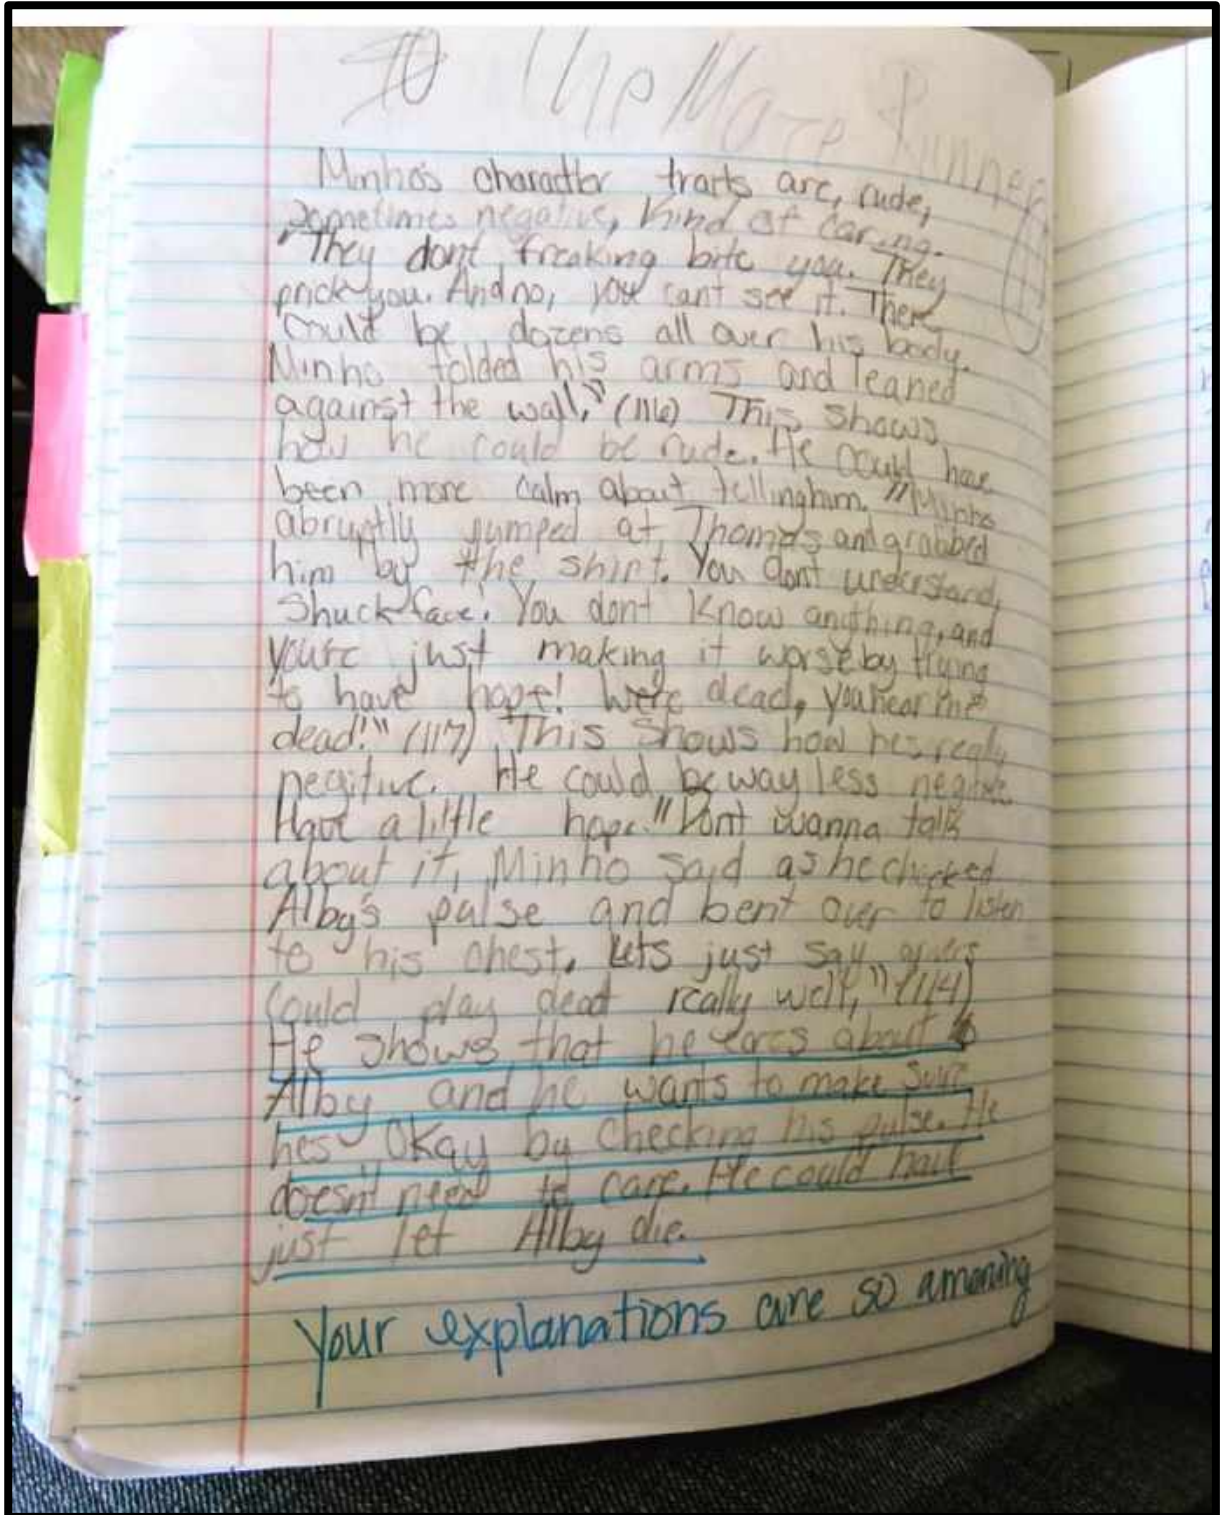 The Maze Runner
Minho's charactbr traits are, rude,
sometimes negative, kind of caring.
"They dont freaking bite you. They
prick you. And no, you cant see it. There
could be dozens all over his body.
Minho folded his arms and leaned
against the wall," (116) This shows
how he could be rude. He could have
been more calm about telling him. "Minho
abruptly jumped at Thomas and grabbed
him by the shirt. You dont understand,
Shuck-face! You dont know anything, and
you're just making it worse by trying
to have hope! Were dead, you hear me
dead!" (117) This shows how hes really
negitive. He could be way less negitive.
Have a little hope. "Dont wanna talk
about it, Minho said as he checked
Alby's pulse and bent over to listen
to his chest. Lets just say grievers
could play dead really well," (114)
He shows that he cares about
Alby and he wants to make sure
hes okay by checking his pulse. He
doesn't need to care. He could have
just let Alby die.
Your explanations are so amazing